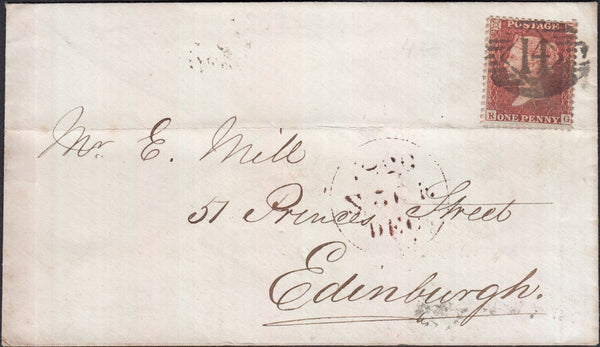 POSTAGE
14
R ONE PENNY G
Mr. E. Mill
51 Princes Street
DEC
Edinburgh.